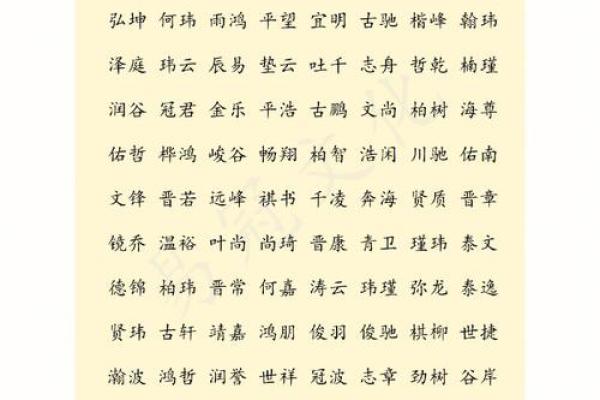 弘坤 何玮 雨鸿 平望 宜明 古驰 楷峰 翰玮
泽庭 玮云 辰易 垫云 吐千 志舟 哲乾 楠瑾
润谷 冠君 金乐 平浩 古鹏 文尚 柏树 海尊
佑哲 桦鸿 峻谷 畅翔 柏智 浩闲 川驰 佑南
文锋 晋若 远峰 祺书 千凌 奔海 贤质 晋章
镜乔 温裕 叶尚 尚琦 晋康 青卫 瑾玮 泰文
德锦 柏玮 晋常 何嘉 涛云 玮瑾 弥龙 泰逸
贤玮 古轩 靖嘉 鸿朋 俊羽 俊驰 棋柳 世捷
瀚波 鸿哲 润誉 世祥 冠波 志章 劲树 谷岸
易冠文化